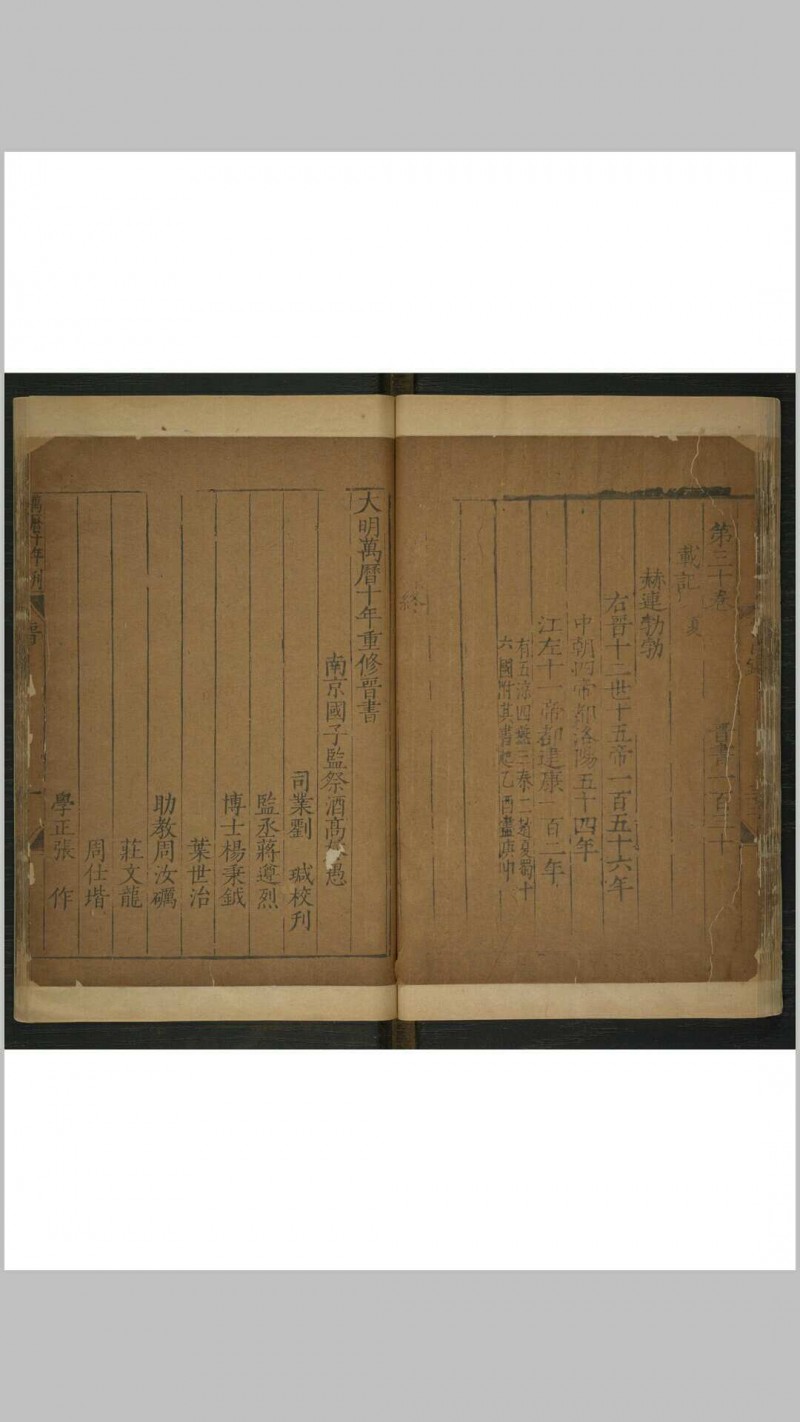 第三十卷 晉書一百三十
載記 夏
赫連勃勃
右晉十二世十五帝一百五十六年
中朝四帝都洛陽五十四年
江左十一帝都建康一百二年
有五涼四燕三秦二趙夏蜀十
六國附其書起乙酉盡庚申
終
大明萬曆十年重修晉書
南京國子監祭酒高 愚
司業劉 瑊校刋
監丞蔣遵烈
博士楊秉鉞
葉世治
助教周汝礪
莊文龍
周仕堦
學正張 作
萬曆十年刋
晉